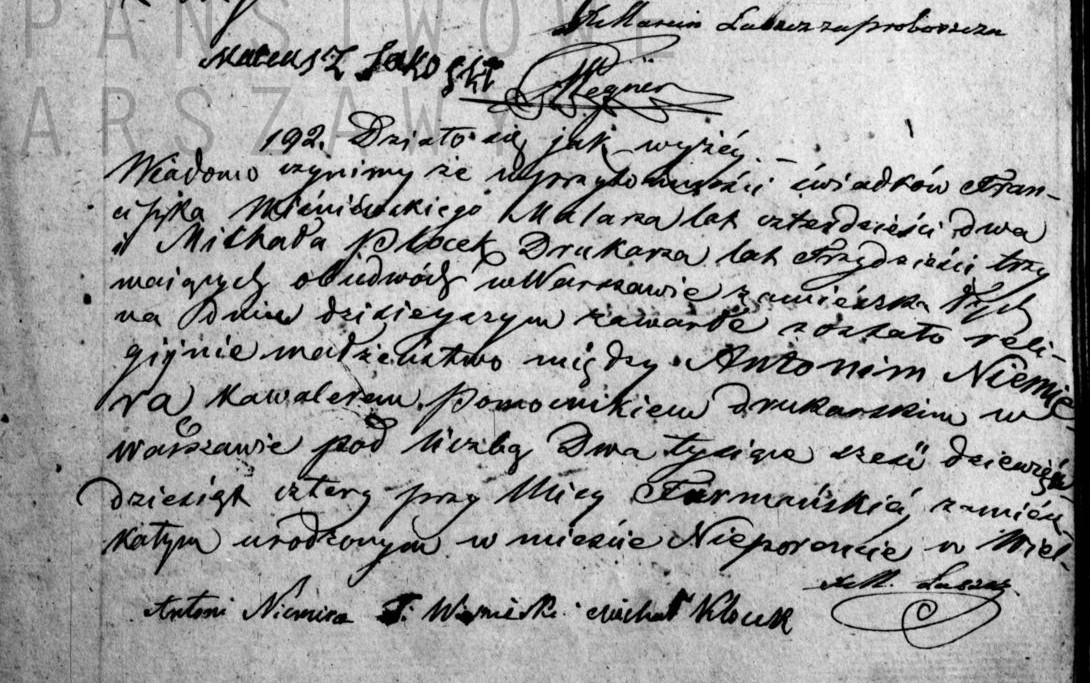 PAŃSTWOWE
ARSZAW
Marcin Łuszcz za proboszcza
Mateusz Jakoski
Wegner
192. Działo się jak wyżéy. –
Wiadomo czynimy że w przytomności świadków Fran-
ciszka Malarza lat czterdzieści dwa
i Michała Płocek Drukarza lat Trzydzieści trzy
maiących obudwóch w Warszawie zamieszkałych
na dniu dzisieyszym zawarte zostało reli-
giynie małżeństwo między Antonim Niemie-
rą Kawalerem, Pomocnikiem drukarskim w
Warszawie pod liczbą Dwa tysiące sześć dziewięć
dziesiąt cztery przy Ulicy Furmańskiéj zamiesz-
kałym urodzonym w mieście Nieporencie w Wiel-
Antoni Niemira Michał Klocek